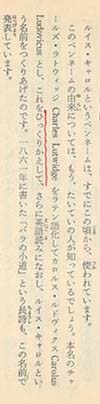 ルイス・キャロルというペンネームは、すでにこの頃から、使われています。
このペンネームの由来については、もう、たいていの人が知っているでしょう。本名のチャ
ールズ・ラトウィッジ Charles Lutwidge をラテン語化してカロルス・ルドヴィクス Carolus
Ludovicus とし、これをひっくりかえして、さらに英語読みになおし、ルイス・キャロルとい
う名前をつくりあげたのです。一八六一年に書いた「バラの小道」という長詩も、この名前で
発表しています。